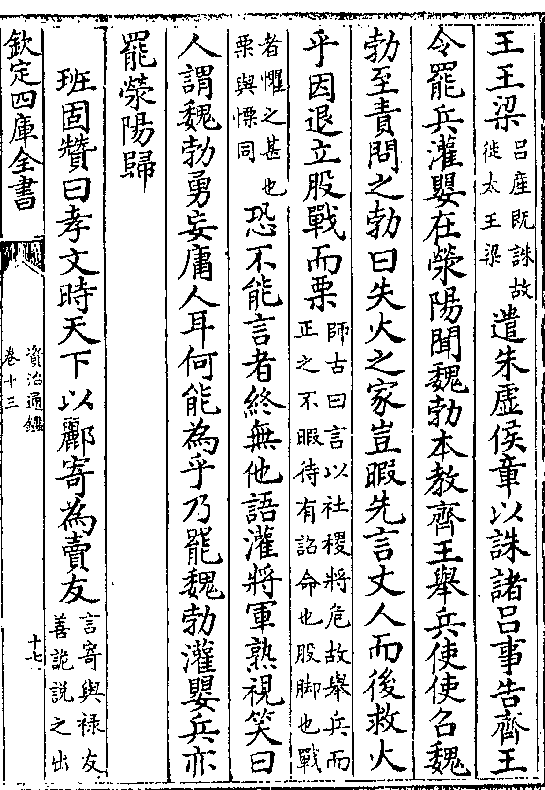 王王梁吕產既誅故徙太王梁遣朱虚侯章以誅諸吕事告齊王
令罷兵灌嬰在滎陽聞魏勃本教齊王舉兵使使召魏
勃至責問之勃曰失火之家豈暇先言丈人而後救火
乎因退立股戰而栗師古曰言以社稷將危故舉兵而正之不暇待有詔命也股脚也戰
者懼之甚也栗與慄同恐不能言者終無他語灌將軍熟視笑曰
人謂魏勃勇妄庸人耳何能為乎乃罷魏勃灌嬰兵亦
罷滎陽歸
班固贊曰孝文時天下以酈寄為賣友言寄與禄友善詭説之出
欽定四庫全書
資治通鑑
卷十三
十七